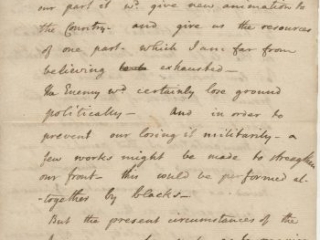 our part it wd. give new animation to
the Country - and give us the resources
of one part - which I am far from
believing exhausted -
The Enemy wd. certainly lose ground
politically - and in order to
prevent our losing it militarily - a
few works might be made to strengthen
our front - this would be performed al-
-together by blacks -
But the present circumstances of the